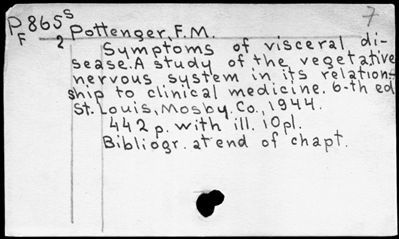 7
P865s Pottenger, F.M.
F 2
Symptoms of visceral di-
sease. A study of the vegetative
nervous system in its relation-
ship to clinical medicine. 6-th ed
St. Louis, Mosby. Co., 1944.
442 p. with ill. 10 pl.
Bibliogr. at end of chapt.